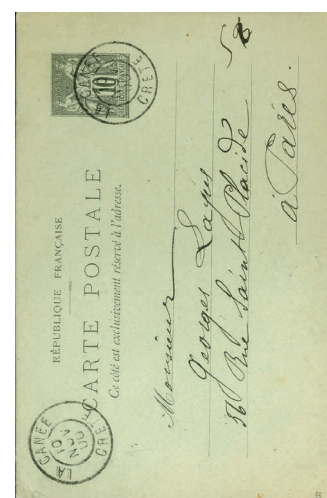 RÉPUBLIQUE FRANÇAISE
CARTE POSTALE
Ce côté est exclusivement réservé à l'adresse.
LA CANÉE
CRETE
10
LA CANÉE
CRETE
Monsieur
Georges
56 Rue Saint Placide
à Paris.